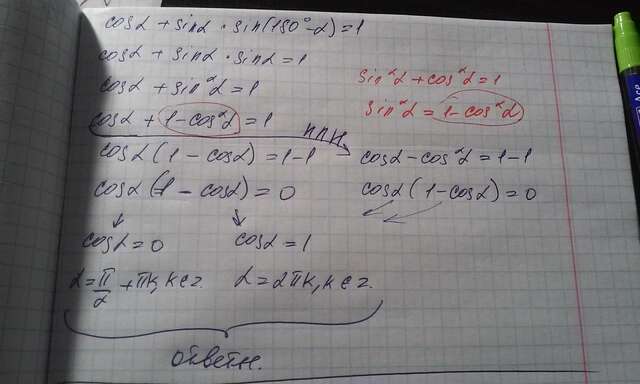 cosα + sinα · sin(180° - α) = 1
cosα + sinα · sinα = 1
cosα + sin²α = 1
sin²α + cos²α = 1
sin²α = 1 - cos²α
cosα + 1 - cos²α = 1
или
cosα (1 - cosα) = 1 - 1
cosα - cos²α = 1 - 1
cosα (1 - cosα) = 0
cosα (1 - cosα) = 0
cosα = 0
cosα = 1
α = π/2 + πk, k ∈ z.
α = 2πk, k ∈ z.
ответы.